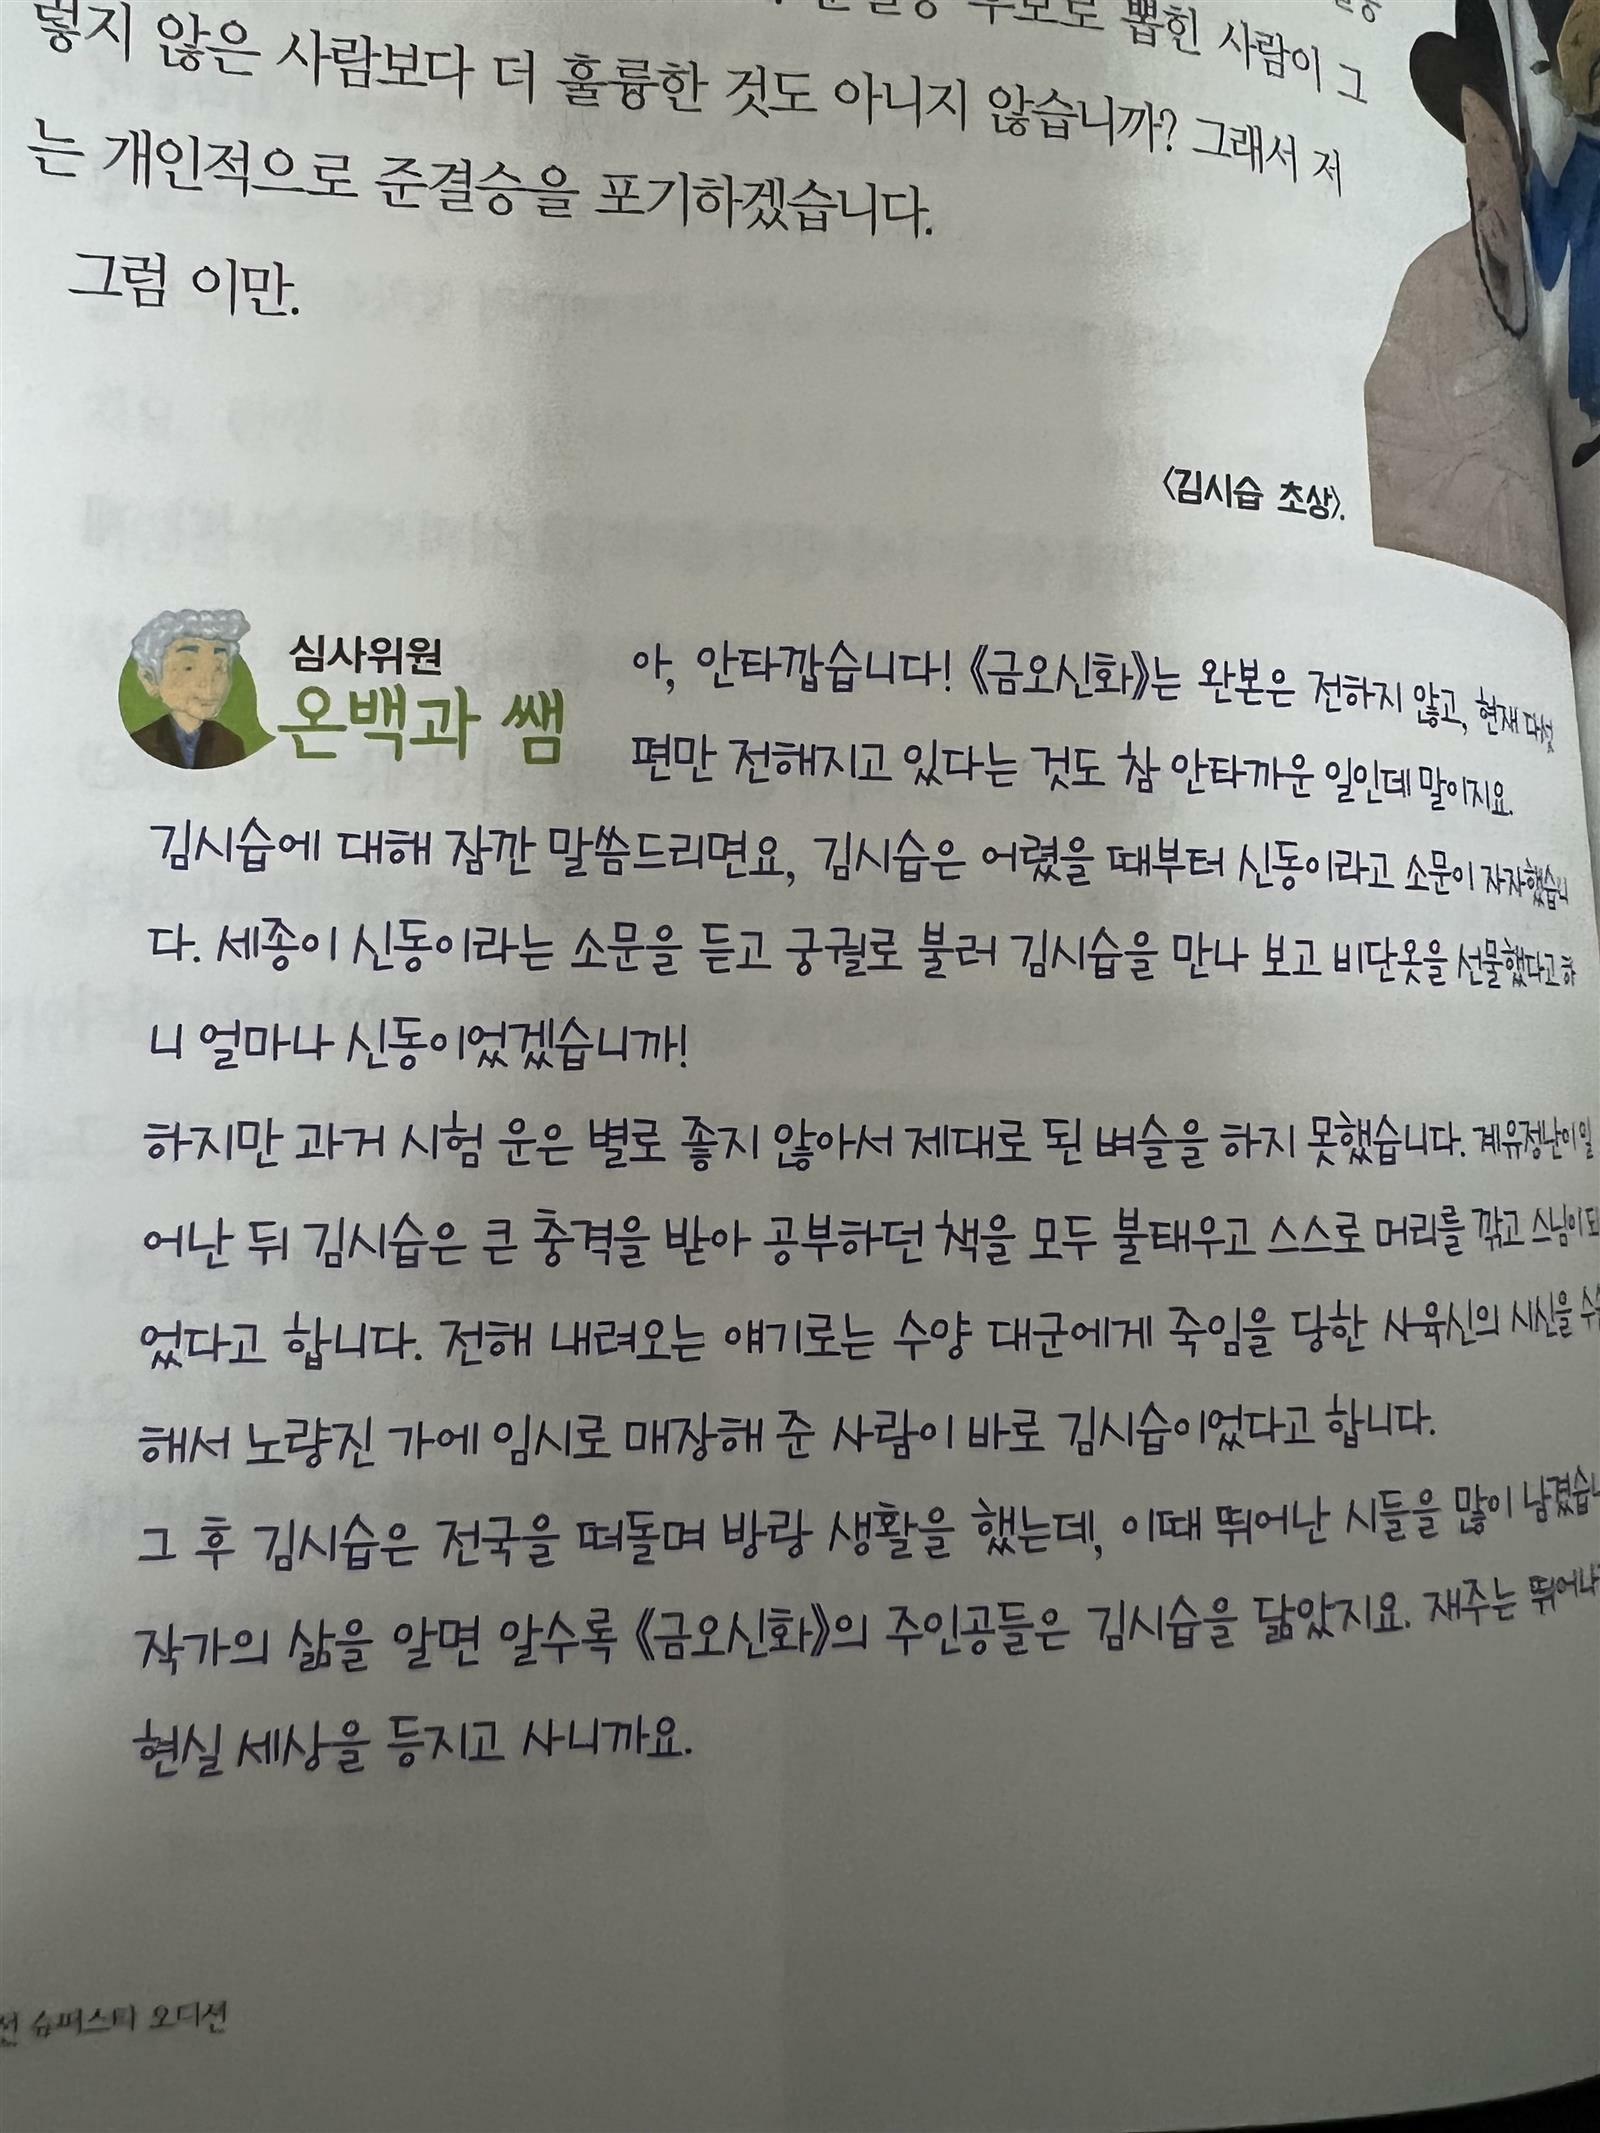 뽑힌 사람이 그
렇지 않은 사람보다 더 훌륭한 것도 아니지 않습니까? 그래서 저
는 개인적으로 준결승을 포기하겠습니다.
그럼 이만.
〈김시습 초상〉.
심사위원
온백과 쌤
아, 안타깝습니다! 《금오신화》는 완본은 전하지 않고, 현재 다섯
편만 전해지고 있다는 것도 참 안타까운 일인데 말이지요.
김시습에 대해 잠깐 말씀드리면요, 김시습은 어렸을 때부터 신동이라고 소문이 자자했습니
다. 세종이 신동이라는 소문을 듣고 궁궐로 불러 김시습을 만나 보고 비단옷을 선물했다고 하
니 얼마나 신동이었겠습니까!
하지만 과거 시험 운은 별로 좋지 않아서 제대로 된 벼슬을 하지 못했습니다. 계유정난이 일
어난 뒤 김시습은 큰 충격을 받아 공부하던 책을 모두 불태우고 스스로 머리를 깎고 스님이 되
었다고 합니다. 전해 내려오는 얘기로는 수양 대군에게 죽임을 당한 사육신의 시신을
해서 노량진 가에 임시로 매장해 준 사람이 바로 김시습이었다고 합니다.
그 후 김시습은 전국을 떠돌며 방랑 생활을 했는데, 이때 뛰어난 시들을 많이
작가의 삶을 알면 알수록 《금오신화》의 주인공들은 김시습을 닮았지요. 재주는
현실 세상을 등지고 사니까요.
슈퍼스타 오디션